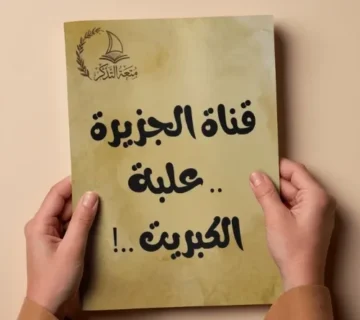 متعة التذكر
قناة الجزيرة
.. علبة
الكبريت ..!